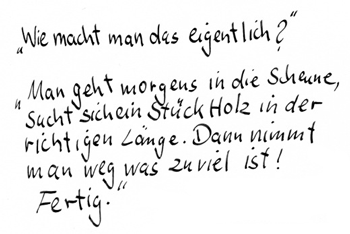 „Wie macht man das eigentlich?“
„Man geht morgens in die Scheune,
sucht sich ein Stück Holz in der
richtigen Länge. Dann nimmt
man weg was zuviel ist!
Fertig.“